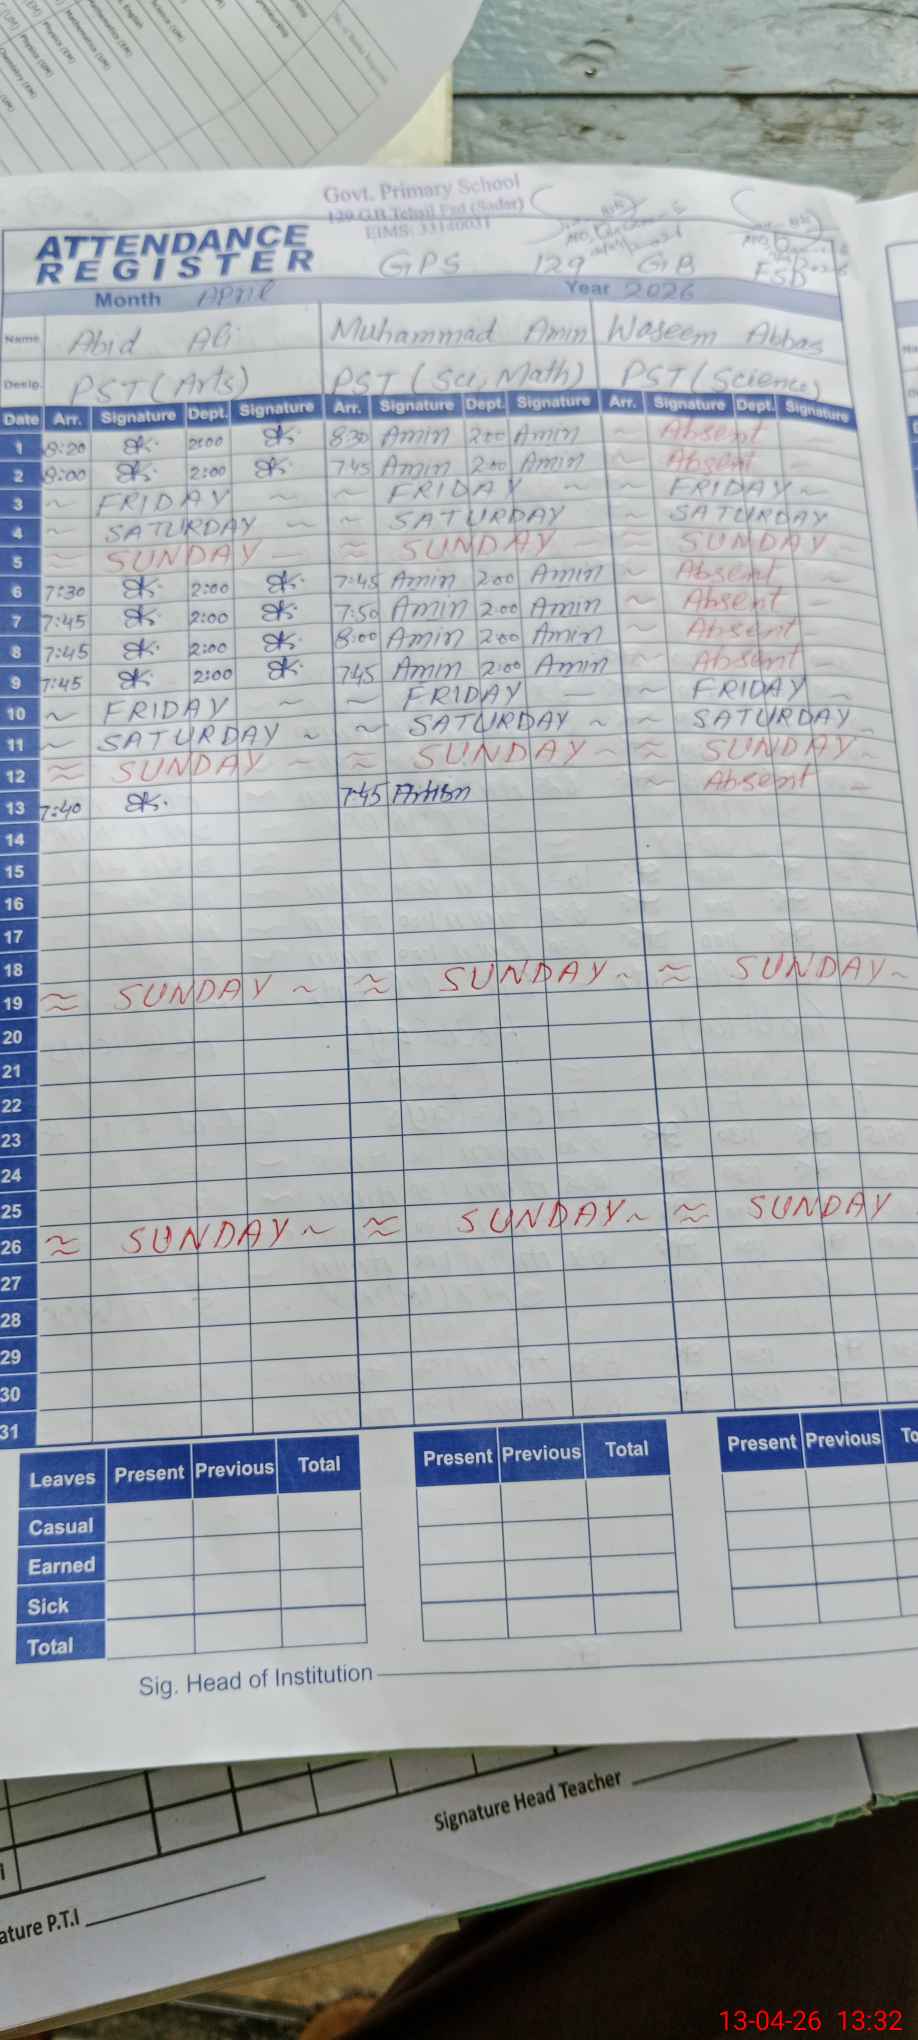 Govt. Primary School
129 G.B Tehsil Fsd (Sadar)
EIMS: 33140031
ATTENDANCE REGISTER
GPS 129 GB FSD
Month April Year 2026
Name Abid Ali Muhammad Amin Waseem Abbas
Desig. PST (Arts) PST (Sci, Math) PST (Science)
Date Arr. Signature Dept. Signature Arr. Signature Dept. Signature Arr. Signature Dept. Signature
1 8:20 2:00 8:30 Amin 2:00 Amin ~ Absent
2 8:00 2:00 7:45 Amin 2:00 Amin ~ Absent
3 ~ FRIDAY ~ ~ FRIDAY ~ ~ FRIDAY ~
4 ~ SATURDAY ~ ~ SATURDAY ~ SATURDAY
5 ≈ SUNDAY ≈ SUNDAY ≈ SUNDAY
6 7:30 2:00 7:45 Amin 2:00 Amin ~ Absent
7 7:45 2:00 7:50 Amin 2:00 Amin ~ Absent
8 7:45 2:00 8:00 Amin 2:00 Amin Absent
9 7:45 2:00 7:45 Amin 2:00 Amin ~ Absent
10 ~ FRIDAY ~ ~ FRIDAY ~ FRIDAY
11 ~ SATURDAY ~ ~ SATURDAY ~ ~ SATURDAY
12 ≈ SUNDAY ~ ≈ SUNDAY ~ ≈ SUNDAY ~
13 7:40 7:45 Amin ~ Absent
14
15
16
17
18
19 ≈ SUNDAY ~ ≈ SUNDAY ~ ≈ SUNDAY ~
20
21
22
23
24
25
26 ≈ SUNDAY ~ ≈ SUNDAY ~ ≈ SUNDAY
27
28
29
30
31
Leaves Present Previous Total Present Previous Total Present Previous To
Casual
Earned
Sick
Total
Sig. Head of Institution
Signature Head Teacher
ature P.T.I
13-04-26 13:32